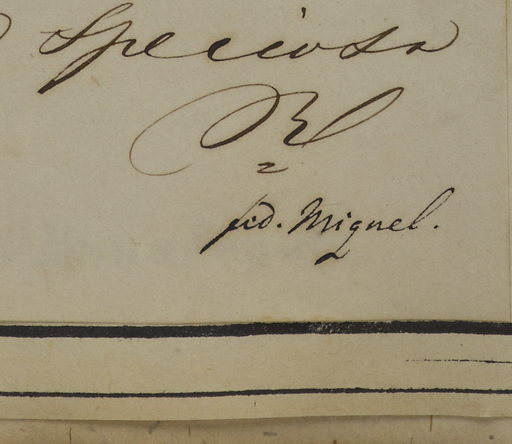 Speciosa
Bl
fid. Miquel.